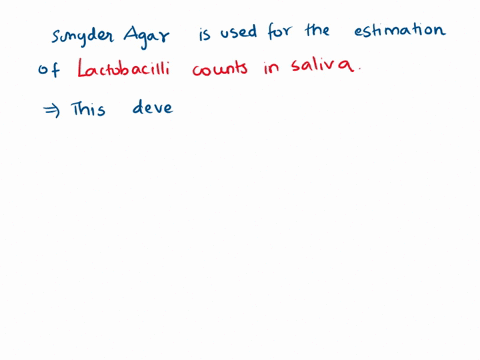 Snyder Agar is used for the estimation
of Lactobacilli counts in saliva.
⇒ This deve